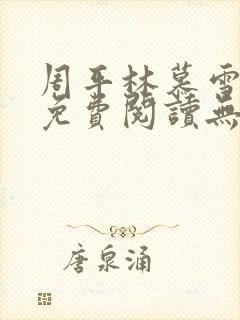 周平林慕雪
免費閱讀無
唐泉涌